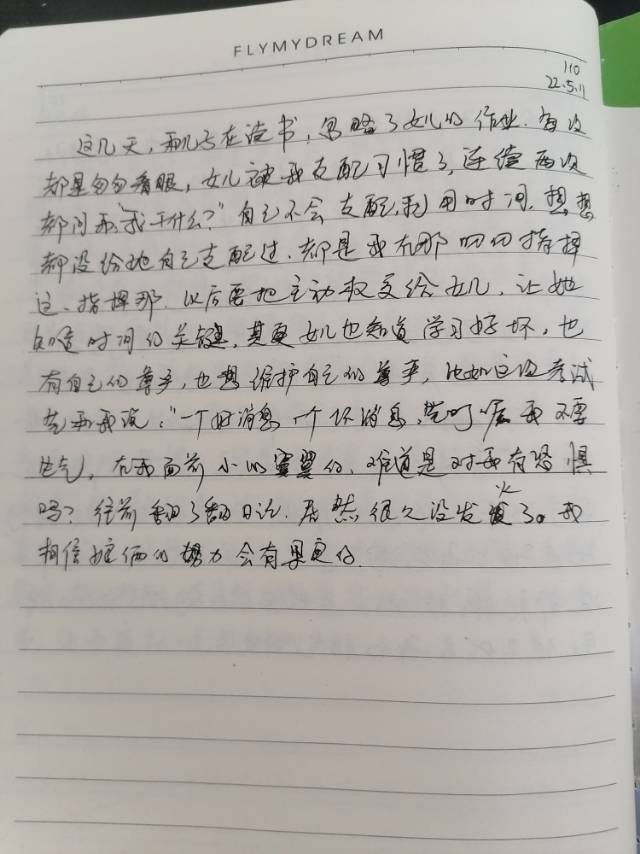 FLYMYDREAM
110
22.5.11
这几天，我几乎在读书，忽略了女儿的作业．每次
都是匆匆看眼，女儿被我支配习惯了，连续两次
都问我"我干什么？"自己不会支配利用时间．想想
都没给她自己支配过．都是我在那叨叨指挥
这、指挥那．以后要把主动权交给女儿，让她
知道时间的关键，其实女儿也知道学习好坏，也
有自己的尊严，也想维护自己的尊严，比如这次考试
先和我说："一个好消息一个坏消息，叮嘱我不要
生气，在我面前小心翼翼的，难道是对我有恐惧
吗？往前翻了翻日记．居然很久没发火了。我
相信娘俩的努力会有果实的．